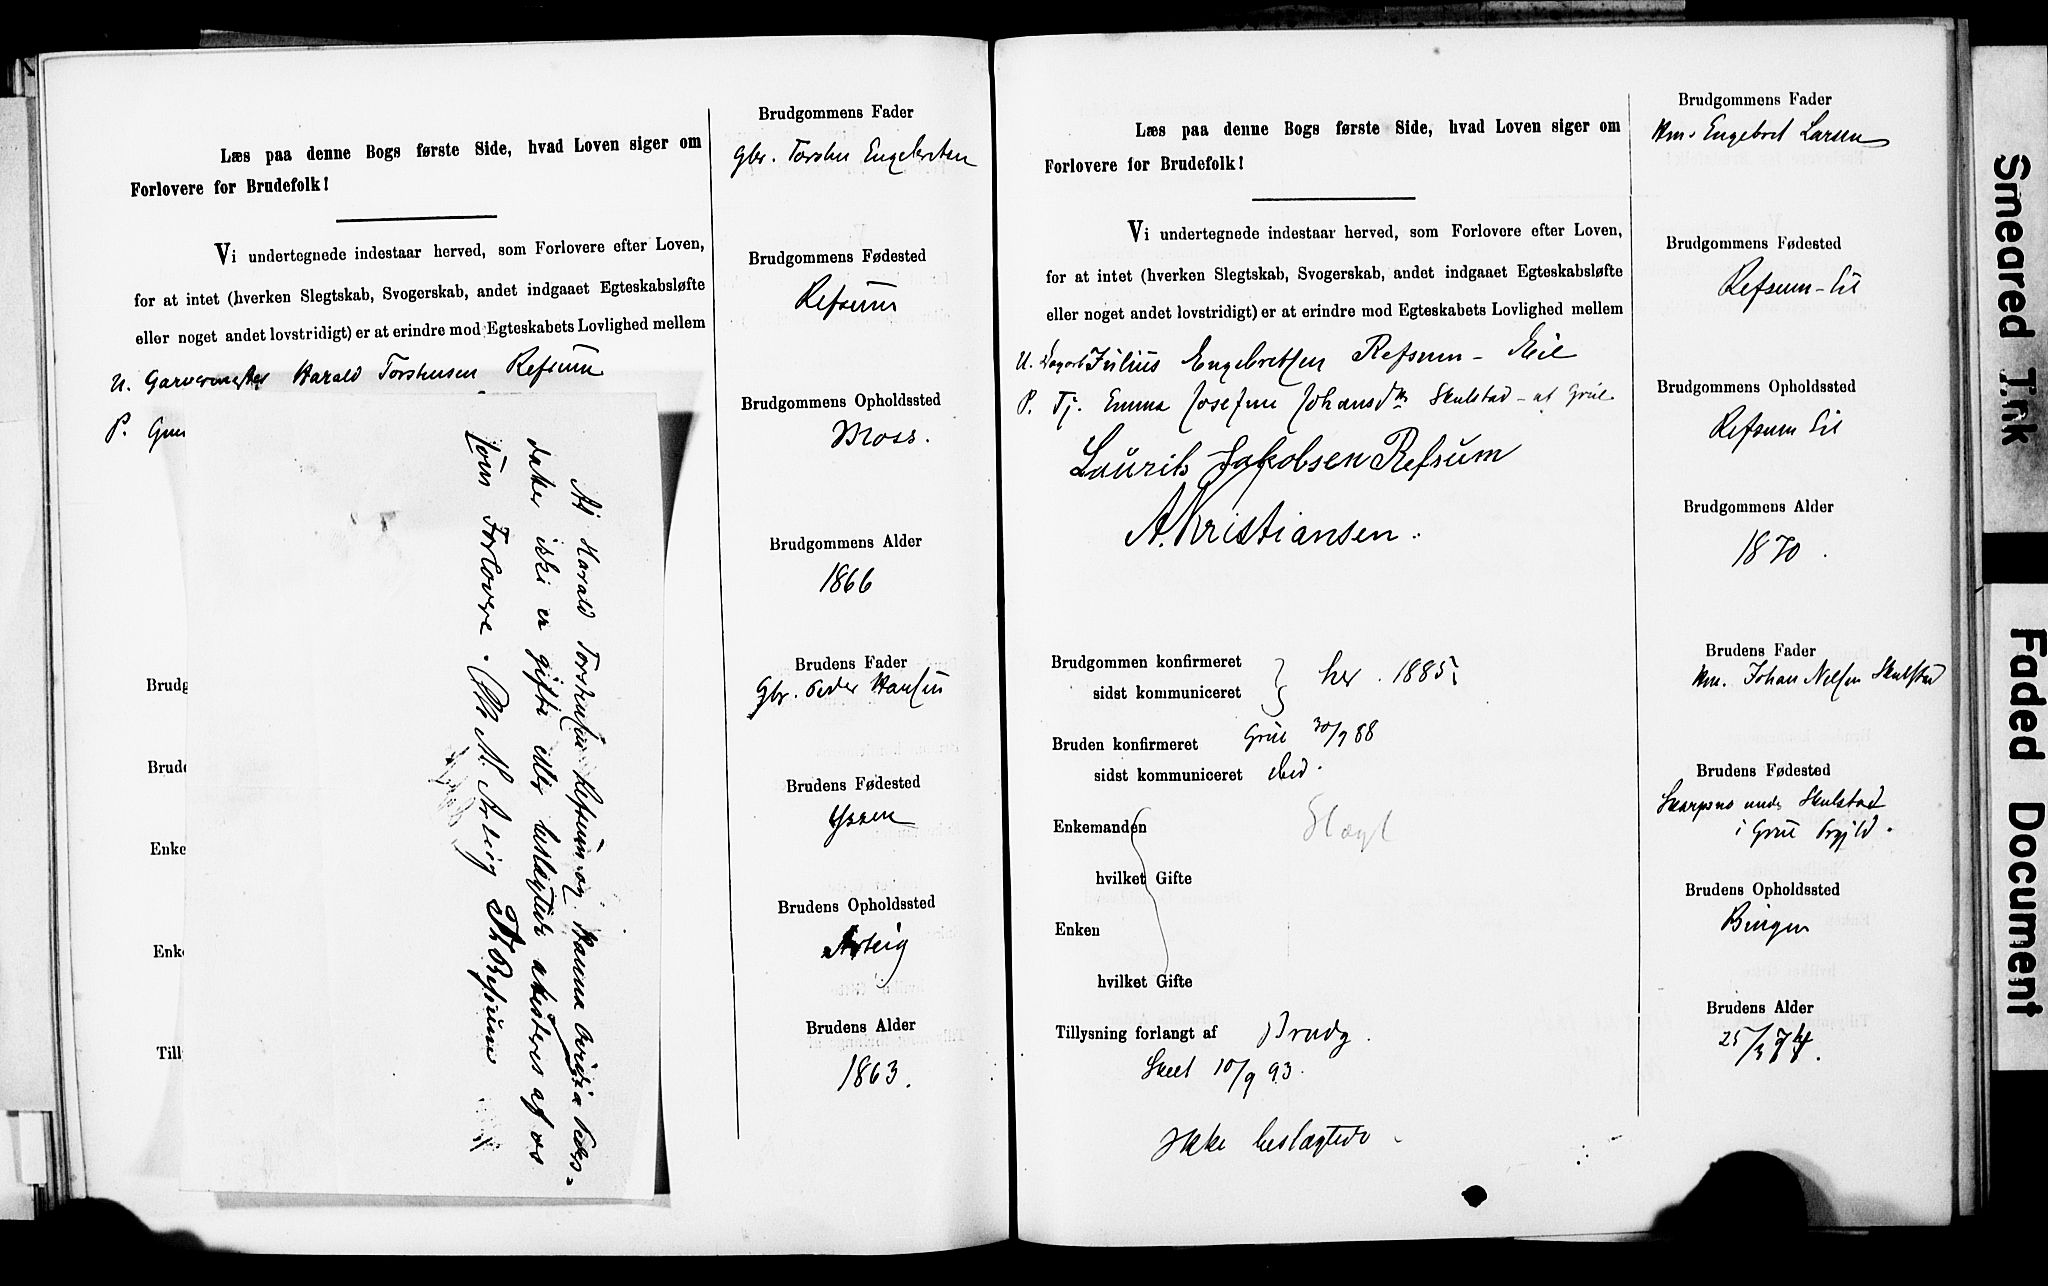 Læs paa denne Bogs første Side, hvad Loven siger om
Forlovere for Brudefolk!
Vi undertegnede indestaar herved, som Forlovere efter Loven,
for at intet (hverken Slegtskab, Svogerskab, andet indgaaet Egteskabsløfte
eller noget andet lovstridigt) er at erindre mod Egteskabets Lovlighed mellem
U. Garvermester Harald Torstensen Refsum
P.
At Harald Torstensen Refsum og Hanna Peders=
datter ikke er gifte eller beslægtede atesteres af os
som Forlovere. M. Arteig Th Refsum
Brudg
Brude
Enke
Enke
Till
Brudgommens Fader
Gbr. Torsten Engebretsen
Brudgommens Fødested
Refsum
Brudgommens Opholdssted
Moss.
Brudgommens Alder
1866
Brudens Fader
Gbr. Peder Hansen
Brudens Fødested
Brudens Opholdssted
Arteig
Brudens Alder
1863.
Læs paa denne Bogs første Side, hvad Loven siger om
Forlovere for Brudefolk!
Vi undertegnede indestaar herved, som Forlovere efter Loven,
for at intet (hverken Slegtskab, Svogerskab, andet indgaaet Egteskabsløfte
eller noget andet lovstridigt) er at erindre mod Egteskabets Lovlighed mellem
U. Dagarb Julius Engebretsen Refsum- Eie
P. Tj. Emma Josefine Johansdtr Skulstad - af Grue
Laurits Jakobsen Refsum
A. Kristiansen.
Brudgommen konfirmeret
sidst kommuniceret } her. 1885
Bruden konfirmeret Grue 30/9 88
sidst kommuniceret ibid.
Enkemanden Slægt
hvilket Gifte
Enken
hvilket Gifte
Tillysning forlangt af Brudg.
Skeet 10/9 93.
Ikke beslægtede
Brudgommens Fader
Hm. Engebret Larsen
Brudgommens Fødested
Refsum-Eie
Brudgommens Opholdssted
Refsum Eie
Brudgommens Alder
1870.
Brudens Fader
Hm. Johan Nilsen Skulstad
Brudens Fødested
Skarpsno under Skulstad
i Grue Prgjld.
Brudens Opholdssted
Bingen
Brudens Alder
25/3 74.
Smeared Ink
Faded Document